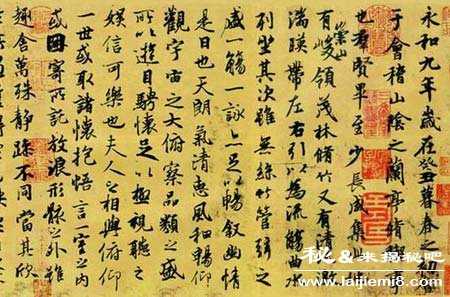 永和九年歲在癸丑暮春之初
于會稽山陰之蘭亭脩禊事
也羣賢畢至少長咸集此
有崇山峻領茂林脩竹又有清流
湍暎帶左右引以為流觴曲水
列坐其次雖無絲竹管弦之
盛一觴一詠亦足以暢敘幽情
是日也天朗氣清惠風和暢仰
觀宇宙之大俯察品類之盛
所以遊目騁懷足以極視聽之
娛信可樂也夫人之相與俯仰
一世或取諸懷抱悟言一室之內
或因寄所託放浪形骸之外雖
趣舍萬殊靜躁不同當其欣
來揭秘吧
www.laijiemi8.com